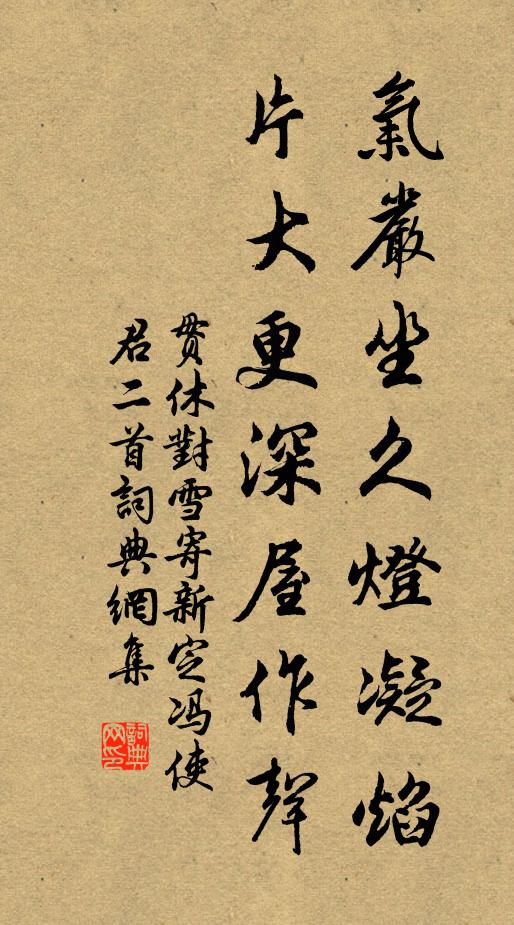 氣嚴坐久燈凝焰
片大更深屋作聲
貫休對雪寄新定馮使
君二首詞典網集
詞典
網印